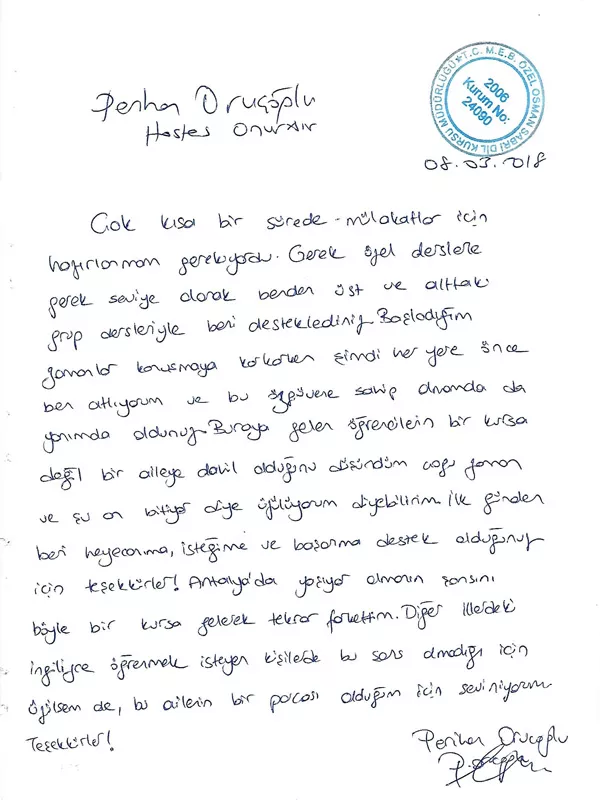 Perihan Oruçoğlu
Hostes Onurair
T.C. M.E.B. ÖZEL OSMAN SABRİ DİL KURSU MÜDÜRLÜĞÜ
2006
Kurum No:
24090
08.03.018
Çok kısa bir sürede mülakatlar için
hazırlanmam gerekiyordu. Gerek özel derslerle
gerek seviye olarak benden üst ve alttaki
grup dersleriyle beni desteklediniz. Başladığım
zamanlar konuşmaya korkarken şimdi her yere önce
ben atlıyorum ve bu özgüvene sahip olmamda da
yanımda oldunuz. Buraya gelen öğrencilerin bir kursa
değil bir aileye dahil olduğunu düşündüm çoğu zaman
ve şu an bitiyor diye üzülüyorum diyebilirim. İlk günden
beri heyecanıma, isteğime ve başarıma destek olduğunuz
için teşekkürler! Antalya'da yaşıyor olmanın şansını
böyle bir kursa gelerek tekrar farkettim. Diğer illerdeki
ingilizce öğrenmek isteyen kişilerde bu şans olmadığı için
üzülsem de, bu ailenin bir parçası olduğum için seviniyorum
Teşekkürler!
Perihan Oruçoğlu